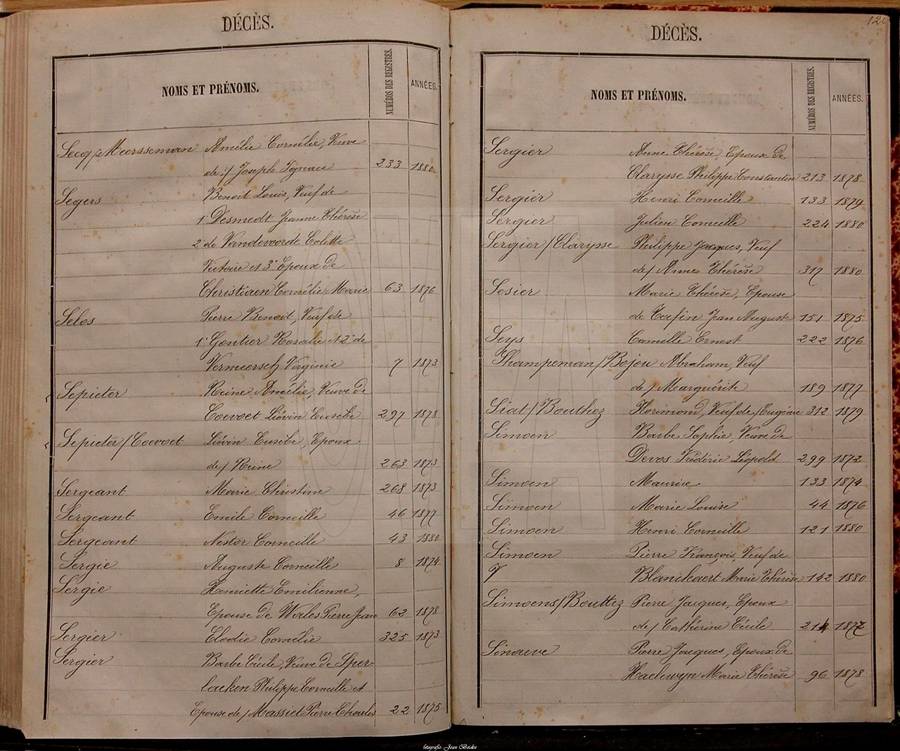 DÉCÈS.
NOMS ET PRÉNOMS. NUMÉROS DES REGISTRES. ANNÉES.
Amélie Cornélie, Veuve
de / Joseph Ignace 233 1880
Segers Benoit Louis, Veuf de
1 Desmedt Jeanne Thérèse
2 de Vandevoorde Colette
Victoire et 3e Epoux de
Christiaen Cornélie Marie 63 1876
Selos Pierre Benoit, Veuf de
1e Gontier Rosalie et 2e de
Vermeersch Virginie 7 1873
Sepieter Reine Amélie, Veuve de
Coevoet Liévin Eusèbe 297 1878
Sepieter / Coevoet Liévin Eusèbe, Epoux
de / Reine 263 1873
Sergeant Marie Christine 268 1873
Sergeant Emile Corneille 46 1877
Sergeant Nestor Corneille 43 1880
Sergie Auguste Corneille 8 1874
Sergie Henriette Emilienne,
Epouse de Wales Pierre Jean 62 1878
Sergier Elodie Cornélie 325 1873
Sergier Barbe Cécile, Veuve de
Philippe Corneille et
Epouse de / Massiet Pierre Charles 22 1875
DÉCÈS. 120
NOMS ET PRÉNOMS. NUMÉROS DES REGISTRES. ANNÉES.
Sergier Anne Thérèse, Epouse de
Clarysse Philippe Constantin 213 1878
Sergier Henri Corneille 133 1879
Sergier Julien Corneille 224 1880
Sergier / Clarysse Philippe Jacques, Veuf
de / Anne Thérèse 317 1880
Sosier Marie Thérèse, Epouse
de Jean Auguste 151 1875
Seys Camille Ernest 222 1876
Abraham, Veuf
de / Marguérite 189 1877
Siat / Bouthez Florimond, Veuf de / Eugénie 312 1879
Simoen Barbe Sophie, Veuve de
Devos Frédéric Léopold 299 1872
Simoen Maurice 133 1874
Simoen Marie Louise 44 1876
Simoen Henri Corneille 121 1880
Simoen Pierre François, Veuf de
Blanckaert Marie Thérèse 142 1880
Simoens / Bouttez Pierre Jacques, Epoux
de / Cathérine Cécile 214 1872
Sinaeve Pierre Jacques, Epoux de
Haelewyn Marie Thérèse 96 1878